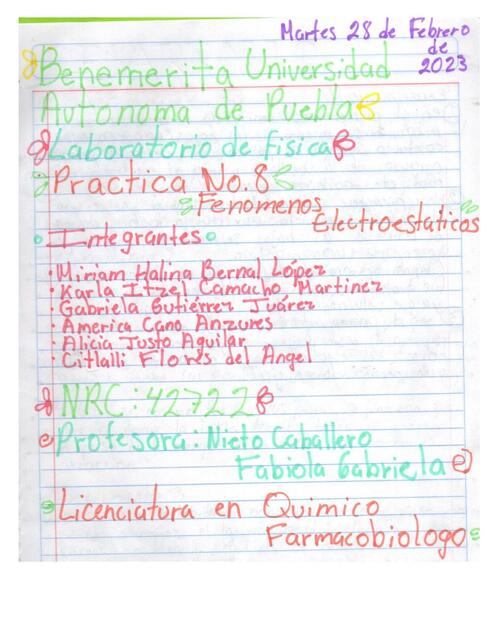 Martes 28 de Febrero
de
2023
Benemerita Universidad
Autonoma de Puebla
Laboratorio de fisica
Practica No.8
Fenomenos
Electroestaticos
Integrantes
• Miriam Halina Bernal López
• Karla Itzel Camacho Martinez
• Gabriela Gutiérrez Juárez
• America Cano Anzures
• Alicia Justo Aguilar
• Citlalli Flores del Angel
NRC: 42722
Profesora: Nieto Caballero
Fabiola Gabriela
Licenciatura en Quimico
Farmacobiologo